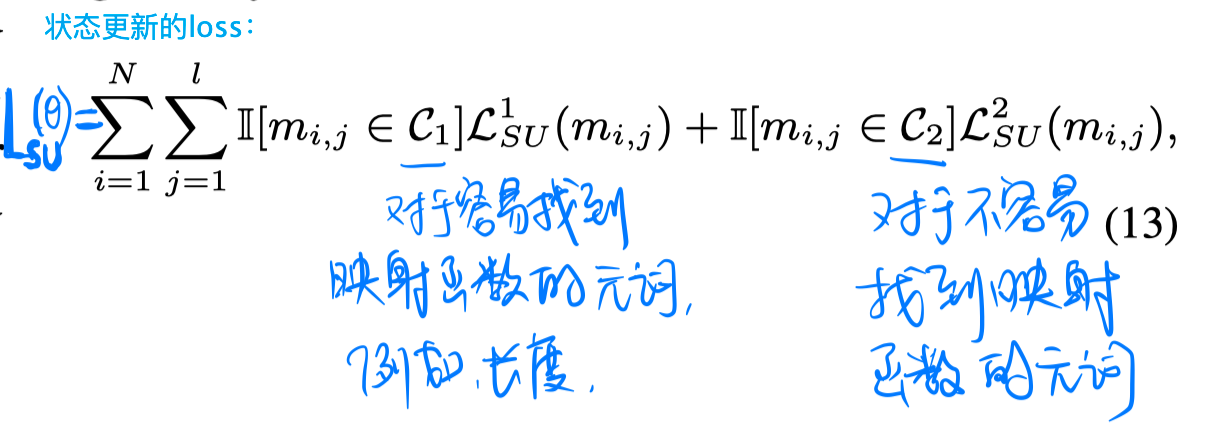 状态更新的loss：
L_{SU}(θ)= \sum_{i=1}^{N} \sum_{j=1}^{l} 𝕀[m_{i,j} ∈ 𝒞_1]ℒ_{SU}^{1}(m_{i,j}) + 𝕀[m_{i,j} ∈ 𝒞_2]ℒ_{SU}^{2}(m_{i,j}),
(13)
对于容易找到
映射函数的元词,
例如、长度.
对于不容易
找到映射
函数的元词